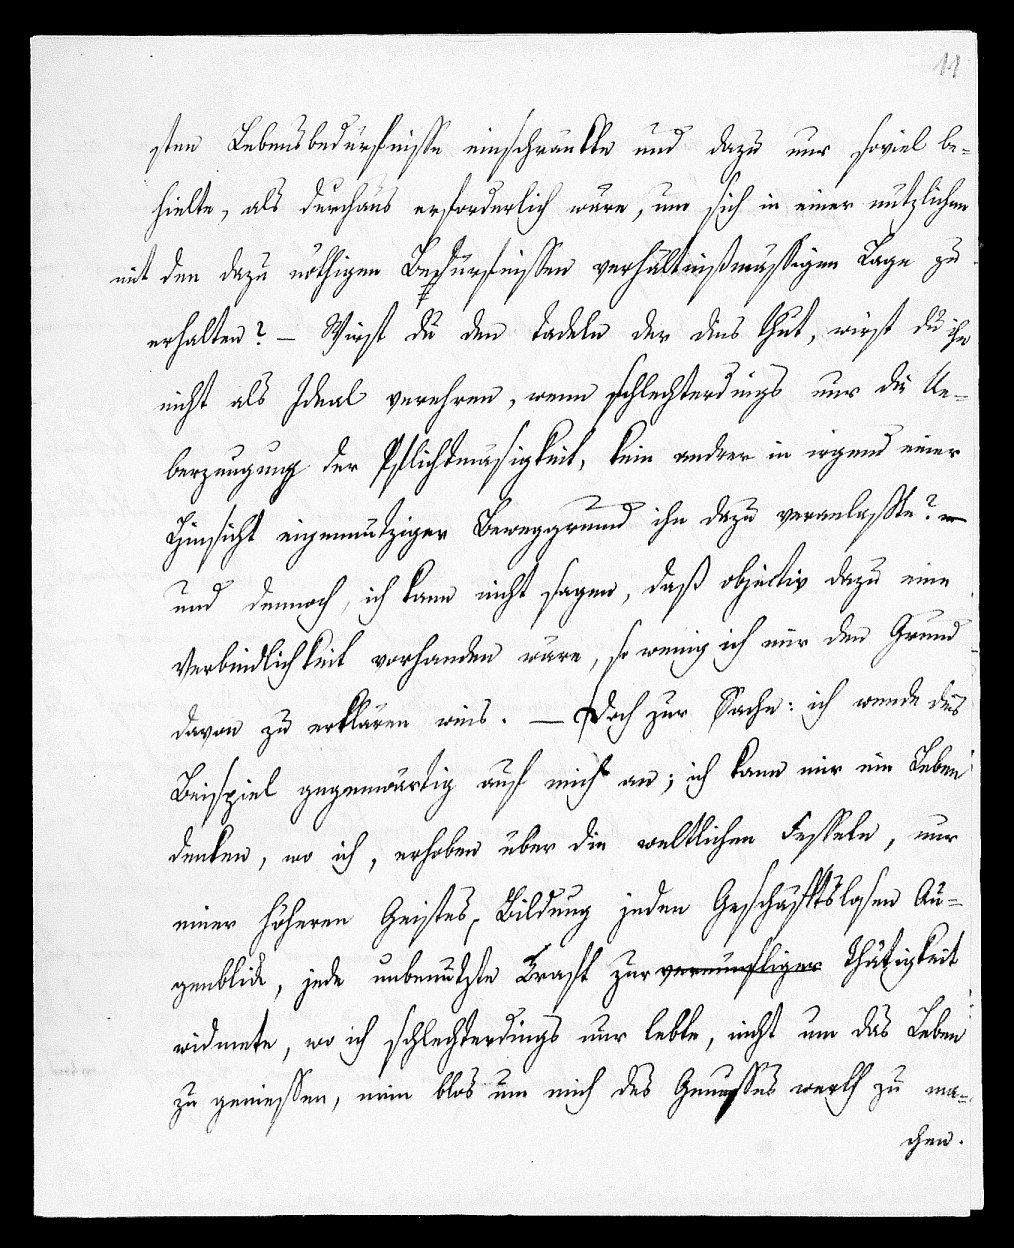 11
sten Lebensbedürfnisse einschränkte und dazu nur soviel be-
hielte, als durchaus erforderlich wäre, um sich in einer nützlichen
mit den dazu nöthigen Bedürfnissen verhältnißmässigen Lage zu
erhalten? – Wirst du den tadeln der dies thut, wirst du ihn
nicht als Ideal verehren, wenn schlechterdings nur die Ue-
berzeugung der Pflichtmäsigkeit, kein andrer in irgend einer
Hinsicht eigennütziger Beweggrund ihn dazu veranlaßte? –
und dennoch, ich kann nicht sagen, daß objectiv dazu eine
Verbindlichkeit vorhanden wäre, so wenig ich mir den Grund
davon zu erklären weis. – Doch zur Sache: ich wende dies
Beispiel gegenwärtig auf mich an; ich kann mir ein Leben
denken, wo ich, erhoben über die weltlichen Fesseln, nur
einer höheren Geistes-Bildung jeden Geschäftslosen Au-
genblick, jede unbenützte Kraft zur vernünftiger Thätigkeit
widmete, wo ich schlechterdings nur lebte, nicht um das Leben
zu geniessen, nein blos um mich des Genusses werth zu ma-
chen.